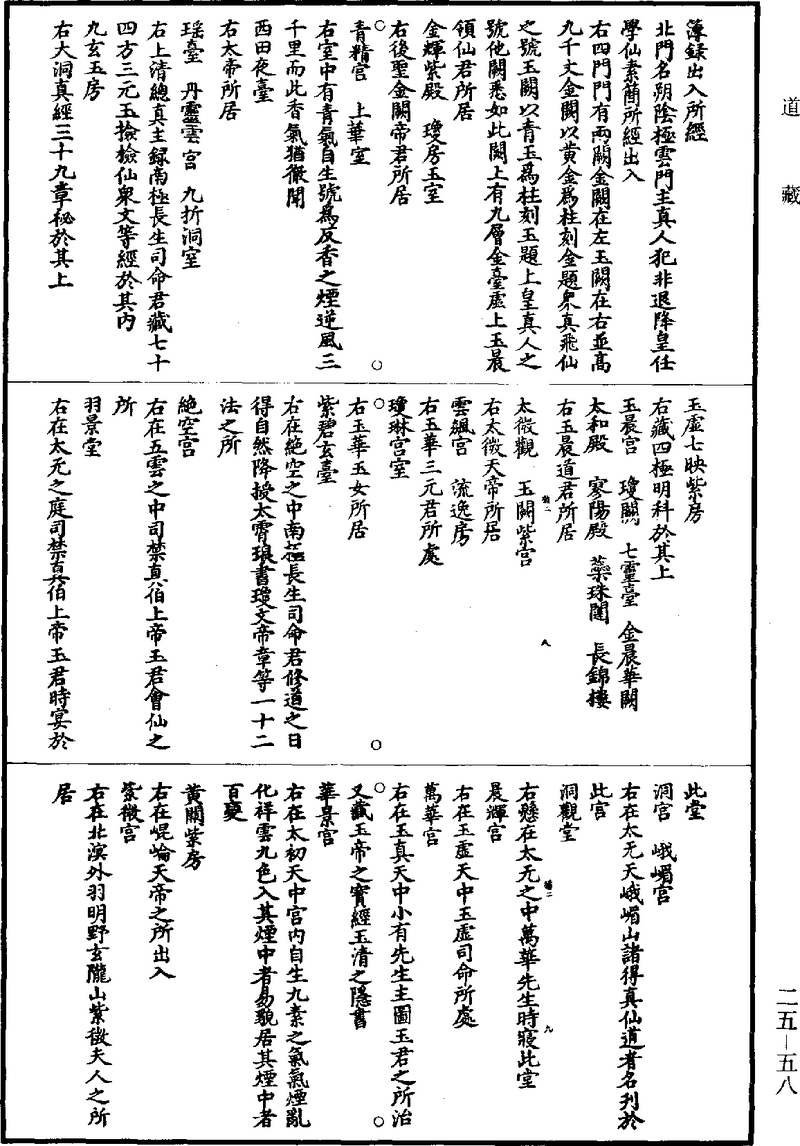 道藏
簿録出入所經
北門名朔陰極雲門主真人犯非退降皇任
學仙素簡所經出入
右四門門有兩闕金闕在左玉闕在右並高
九千丈金闕以黃金爲柱刻金題衆真飛仙
之號玉闕以青玉爲柱刻玉題上皇真人之
號他闕悉如此闕上有九層金臺虛上玉晨
領仙君所居
金輝紫殿　瓊房玉室
右後聖金闕帝君所居
青精宮　上華室
右室中有青氣自生號爲反香之煙逆風三
千里而此香氣猶徹聞
西田夜臺
右太帝所居
瑶臺　丹靈雲宮　九折洞室
右上清總真主録南極長生司命君藏七十
四方三元玉撿撿仙衆文等經於其內
九玄玉房
右大洞真經三十九章祕於其上
玉虛七映紫房
右藏四極明科於其上
玉晨宮　瓊闕　七靈臺　金晨華闕
太和殿　寥陽殿　蘂珠闥　長錦樓
右玉晨道君所居
太微觀　玉闕紫宮
右太微天帝所居
雲飆宮　流逸房
右玉華三元君所處
瓊琳宮室
右玉華玉女所居
紫碧玄臺
右在絶空之中南極長生司命君修道之日
得自然降授太霄琅書瓊文帝章等一十二
法之所
絶空宮
右在五雲之中司禁真伯上帝玉君會仙之
所
羽景堂
右在太无之庭司禁真伯上帝玉君時宴於
此堂
洞宮　峨嵋宮
右在太无天峨嵋山諸得真仙道者名刋於
此宮
洞觀堂
右懸在太无之中萬華先生時寢此堂
晨輝宮
右在玉虛天中玉虛司命所處
萬華宮
右在玉真天中小有先生主圖玉君之所治
又藏玉帝之寶經玉清之隱書
華景宮
右在太初天中宮內自生九素之氣氣煙亂
化祥雲九色入其煙中者易貌居其煙中者
百變
黃闕紫房
右在崐崘天帝之所出入
紫微宮
右在北溟外羽明野玄隴山紫微夫人之所
居
二五—五八